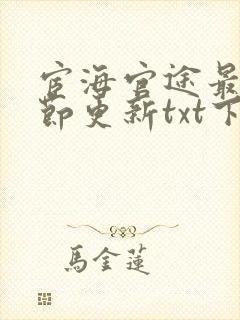 宦海官途最
节更新txt下
馬金蓮